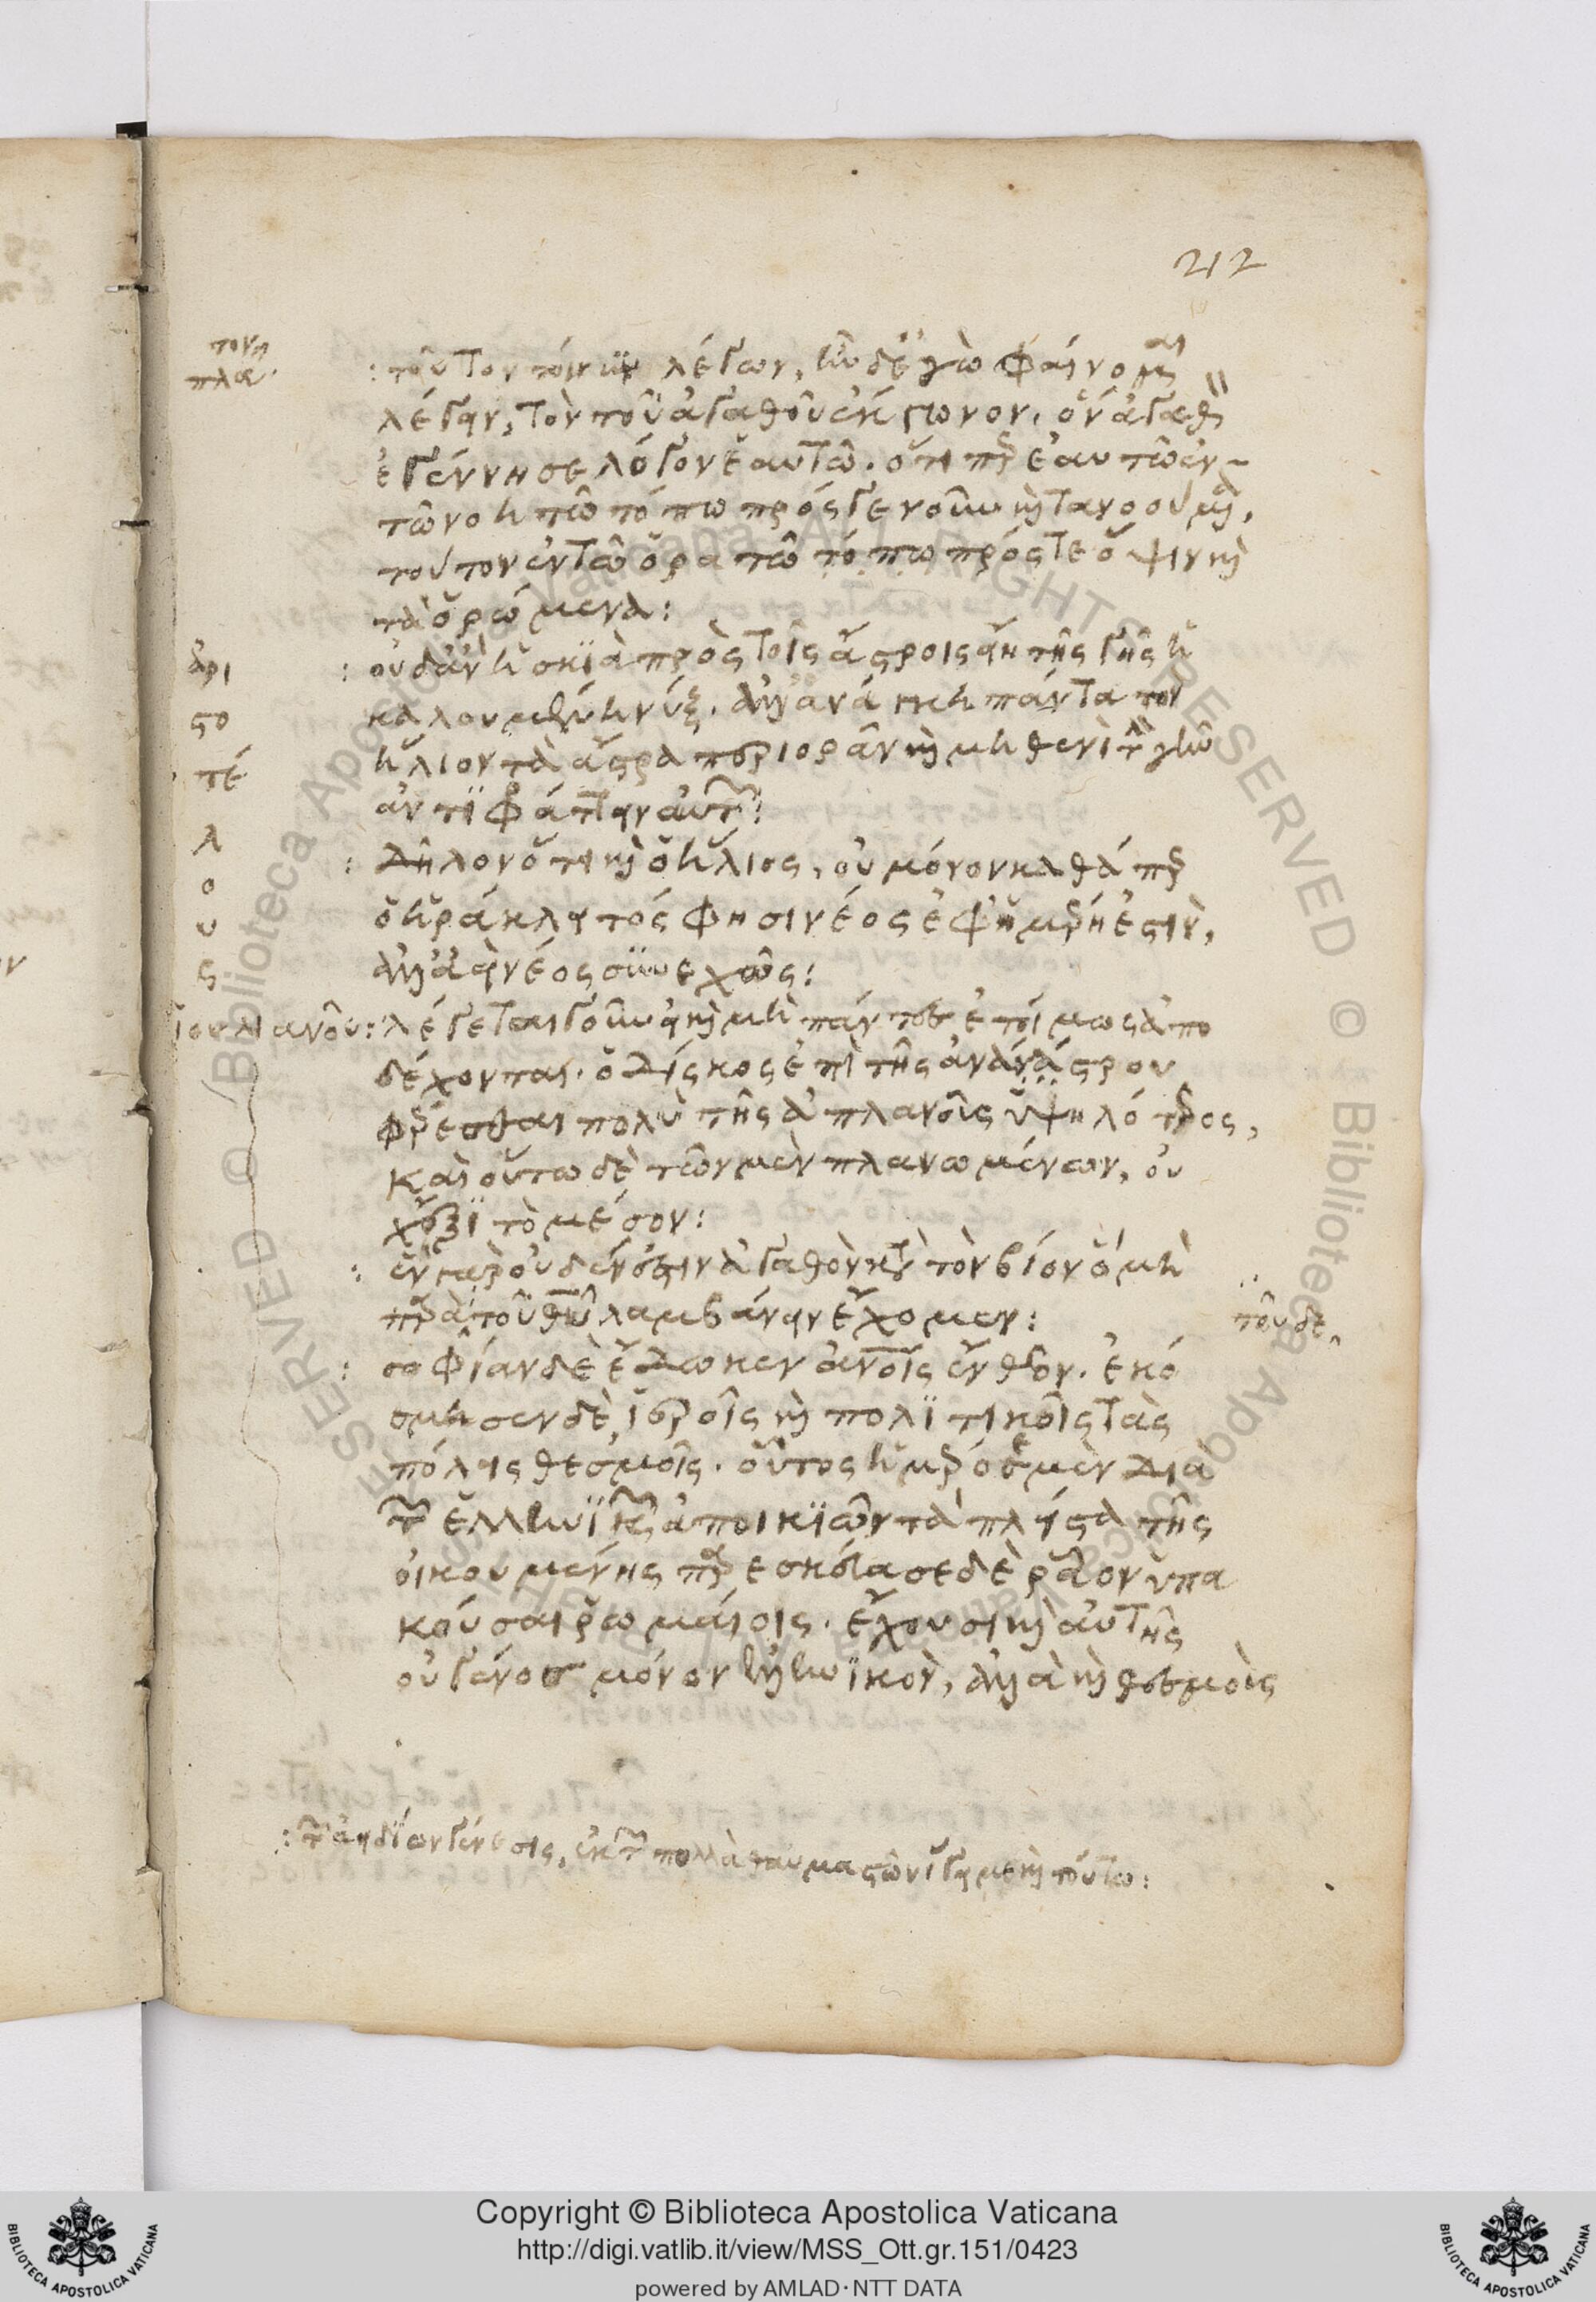 212
πλα
: τοῦτον τοίνυν λέγων, ἦν δ' ἐγὼ φαίνομαι
λέγειν, τὸν τοῦ ἀγαθοῦ ἔκγονον. ὃν ἀγαθὸν
ἐγέννησε λόγον ἑαυτῶ. ὅτι περ ἑαυτῶ ἐν
τῶ νοητῶ τόπω πρός γε νοῦν καὶ τὰ νοούμενα,
τοῦτον ἐν τῶ ὁρατῶ τόπω πρός τε ὄψιν καὶ
τὰ ὁρώμενα:
ἀριστοτέλους
: οὐδ' ἂν ἡ σκϊὰ πρὸς τοῖς ἄστροις εἴη τῆς γῆς ἡ
καλουμένη νύξ. ἀλλ' ἀνάγκη πάντα τὸν
ἥλιον τὰ ἄστρα περιορᾶν καὶ μηθενὶ τὴν γῆν
ἀντιφράττειν αὐτῶν:
: δῆλον ὅτι καὶ ὁ ἥλιος, οὐ μόνον καθάπερ
ὁ ἡράκλειτός φησι νέος ἐφ' ἡμέρη ἐστὶν,
ἀλλ' ἀεὶ νέος συνεχῶς:
ἰουλιανοῦ: λέγεται γοῦν εἰ καὶ μὴ πάντες ἑτοίμως ἀπο
δέχονται. ὁ δίσκος ἐπὶ τῆς ἀνάστρου
φέρεσθαι πολὺ τῆς ἀπλανοῦς ὑψηλότερος,
καὶ οὕτω δὲ τῶν μὲν πλανωμένων, οὐ
χ' ἕξϊ τὸ μέσον:
: ἓν γὰρ οὐδέν ἐστιν ἀγαθὸν κατὰ τὸν βίον ὃ μὴ
παρὰ τοῦ θεοῦ λαμβάνειν ἔχομεν: τοῦδε
: σοφίαν δὲ ἔδωκεν ἀνοις ἔνθεον. ἐκό
σμησεν δὲ ἱεροῖς καὶ πολϊτικοῖς τὰς
πόλεις θεσμοῖς. οὗτος ἡμέρωσε μὲν διὰ
τῶν ἑλληνϊκῶν ἀποικϊῶν τὰ πλεῖστα τῆς
οἰκουμένης παρεσκεύασε δὲ ρᾶον ὑπα
κοῦσαι ῥωμαίοις. ἔχουσι καὶ αὐτῆς
οὐ γένος μόνον ἑλληνϊκὸν, ἀλλὰ καὶ θεσμοὺς
: τῶν ἀειδίων γένεσις, ἐκ τῶν πολλὰ
Copyright © Biblioteca Apostolica Vaticana
http://digi.vatlib.it/view/MSS_Ott.gr.151/0423
powered by AMLAD·NTT DATA
BIBLIOTECA APOSTOLICA VATICANA
BIBLIOTECA APOSTOLICA VATICANA